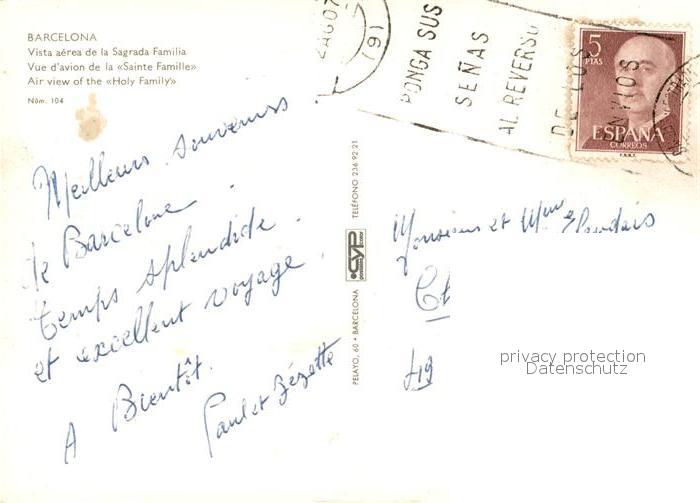 BARCELONA
Vista aérea de la Sagrada Familia
Vue d'avion de la «Sainte Famille»
Air view of the «Holy Family»
Núm. 104
Meilleurs souvenirs
de Barcelone.
temps splendide.
et excellent voyage.
A Bientôt.
Paul et Zézette
PELAYO, 60 • BARCELONA
CYP
TELÉFONO 236 92 21
PONGA SUS
SEÑAS
AL REVERSO
DE LOS
ENVIOS
5
PTAS
ESPAÑA
CORREOS
F.N.M.T.
Monsieur et Mme
privacy protection
Datenschutz